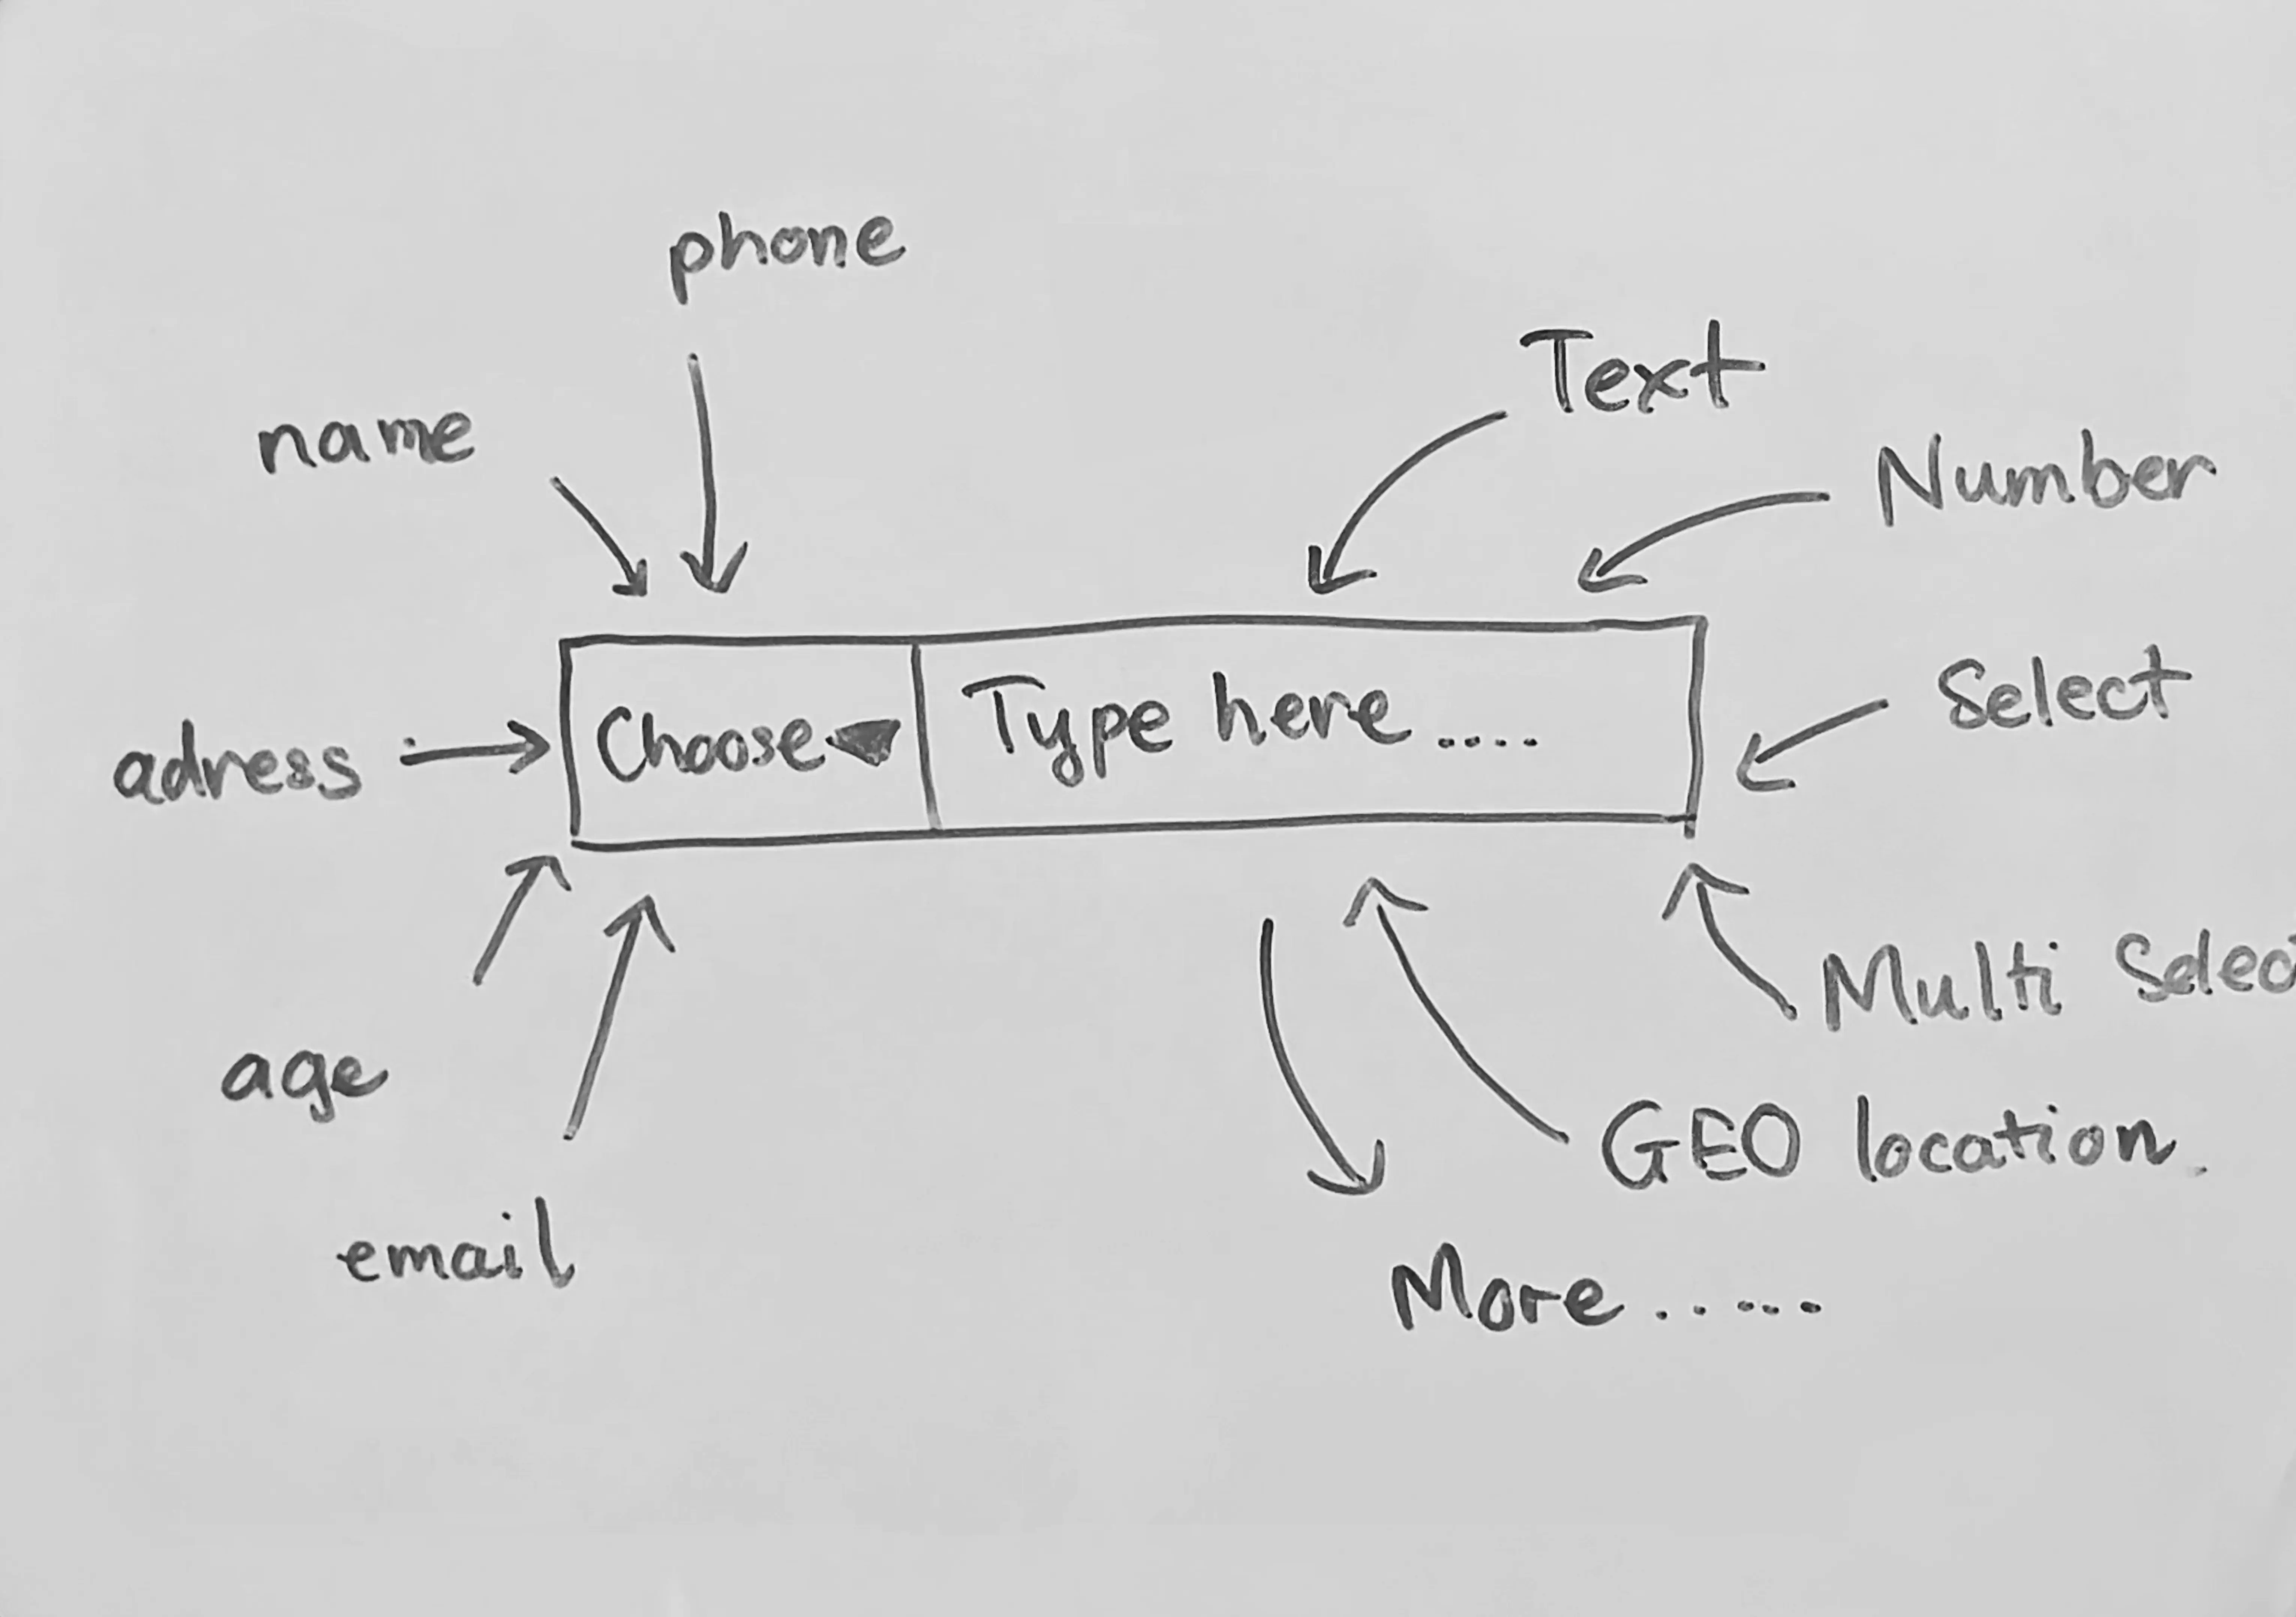 phone
Text
name
Number
Select
adress
Choose
Type here ....
Multi Selec
age
GEO location.
email
More ......